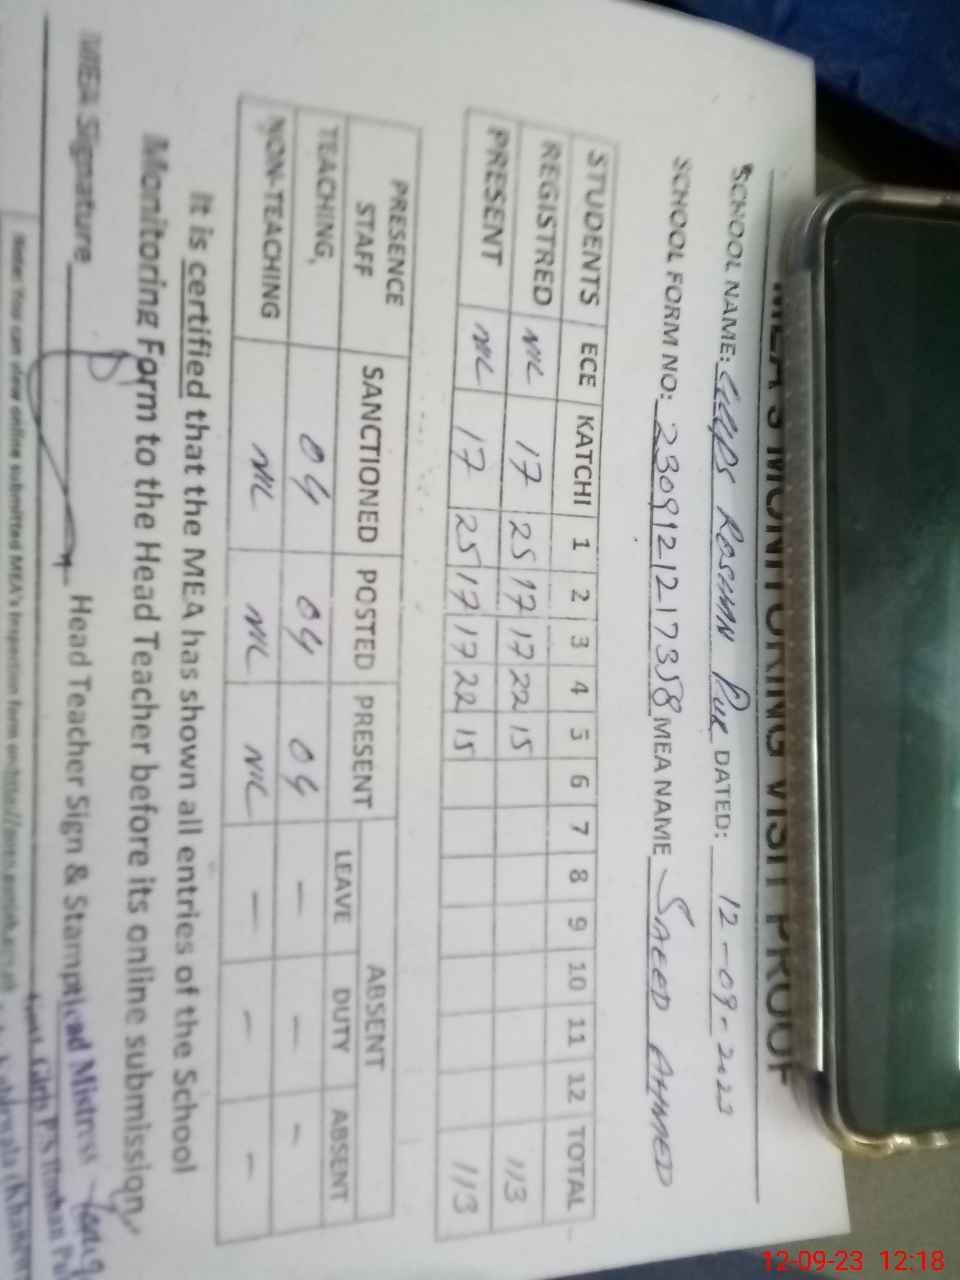 MEA'S MONITORING VISIT PROOF
SCHOOL NAME: GGPS ROSHAN PUR DATED: 12-09-2023
SCHOOL FORM NO: 2309121217358 MEA NAME SAEED AHMED
STUDENTS ECE KATCHI 1 2 3 4 5 6 7 8 9 10 11 12 TOTAL
REGISTRED NIL 17 25 17 17 22 15 113
PRESENT NIL 17 25 17 17 22 15 113
PRESENCE STAFF SANCTIONED POSTED PRESENT ABSENT
LEAVE DUTY ABSENT
TEACHING, 04 04 04 - - -
NON-TEACHING NIL NIL NIL - - -
It is certified that the MEA has shown all entries of the School
Monitoring Form to the Head Teacher before its online submission.
MEA Signature Head Teacher Sign & Stamp
Head Mistress
Govt. Girls P/S Roshan Pur
Note: You can view online submitted MEA's Inspection form on
12-09-23 12:18